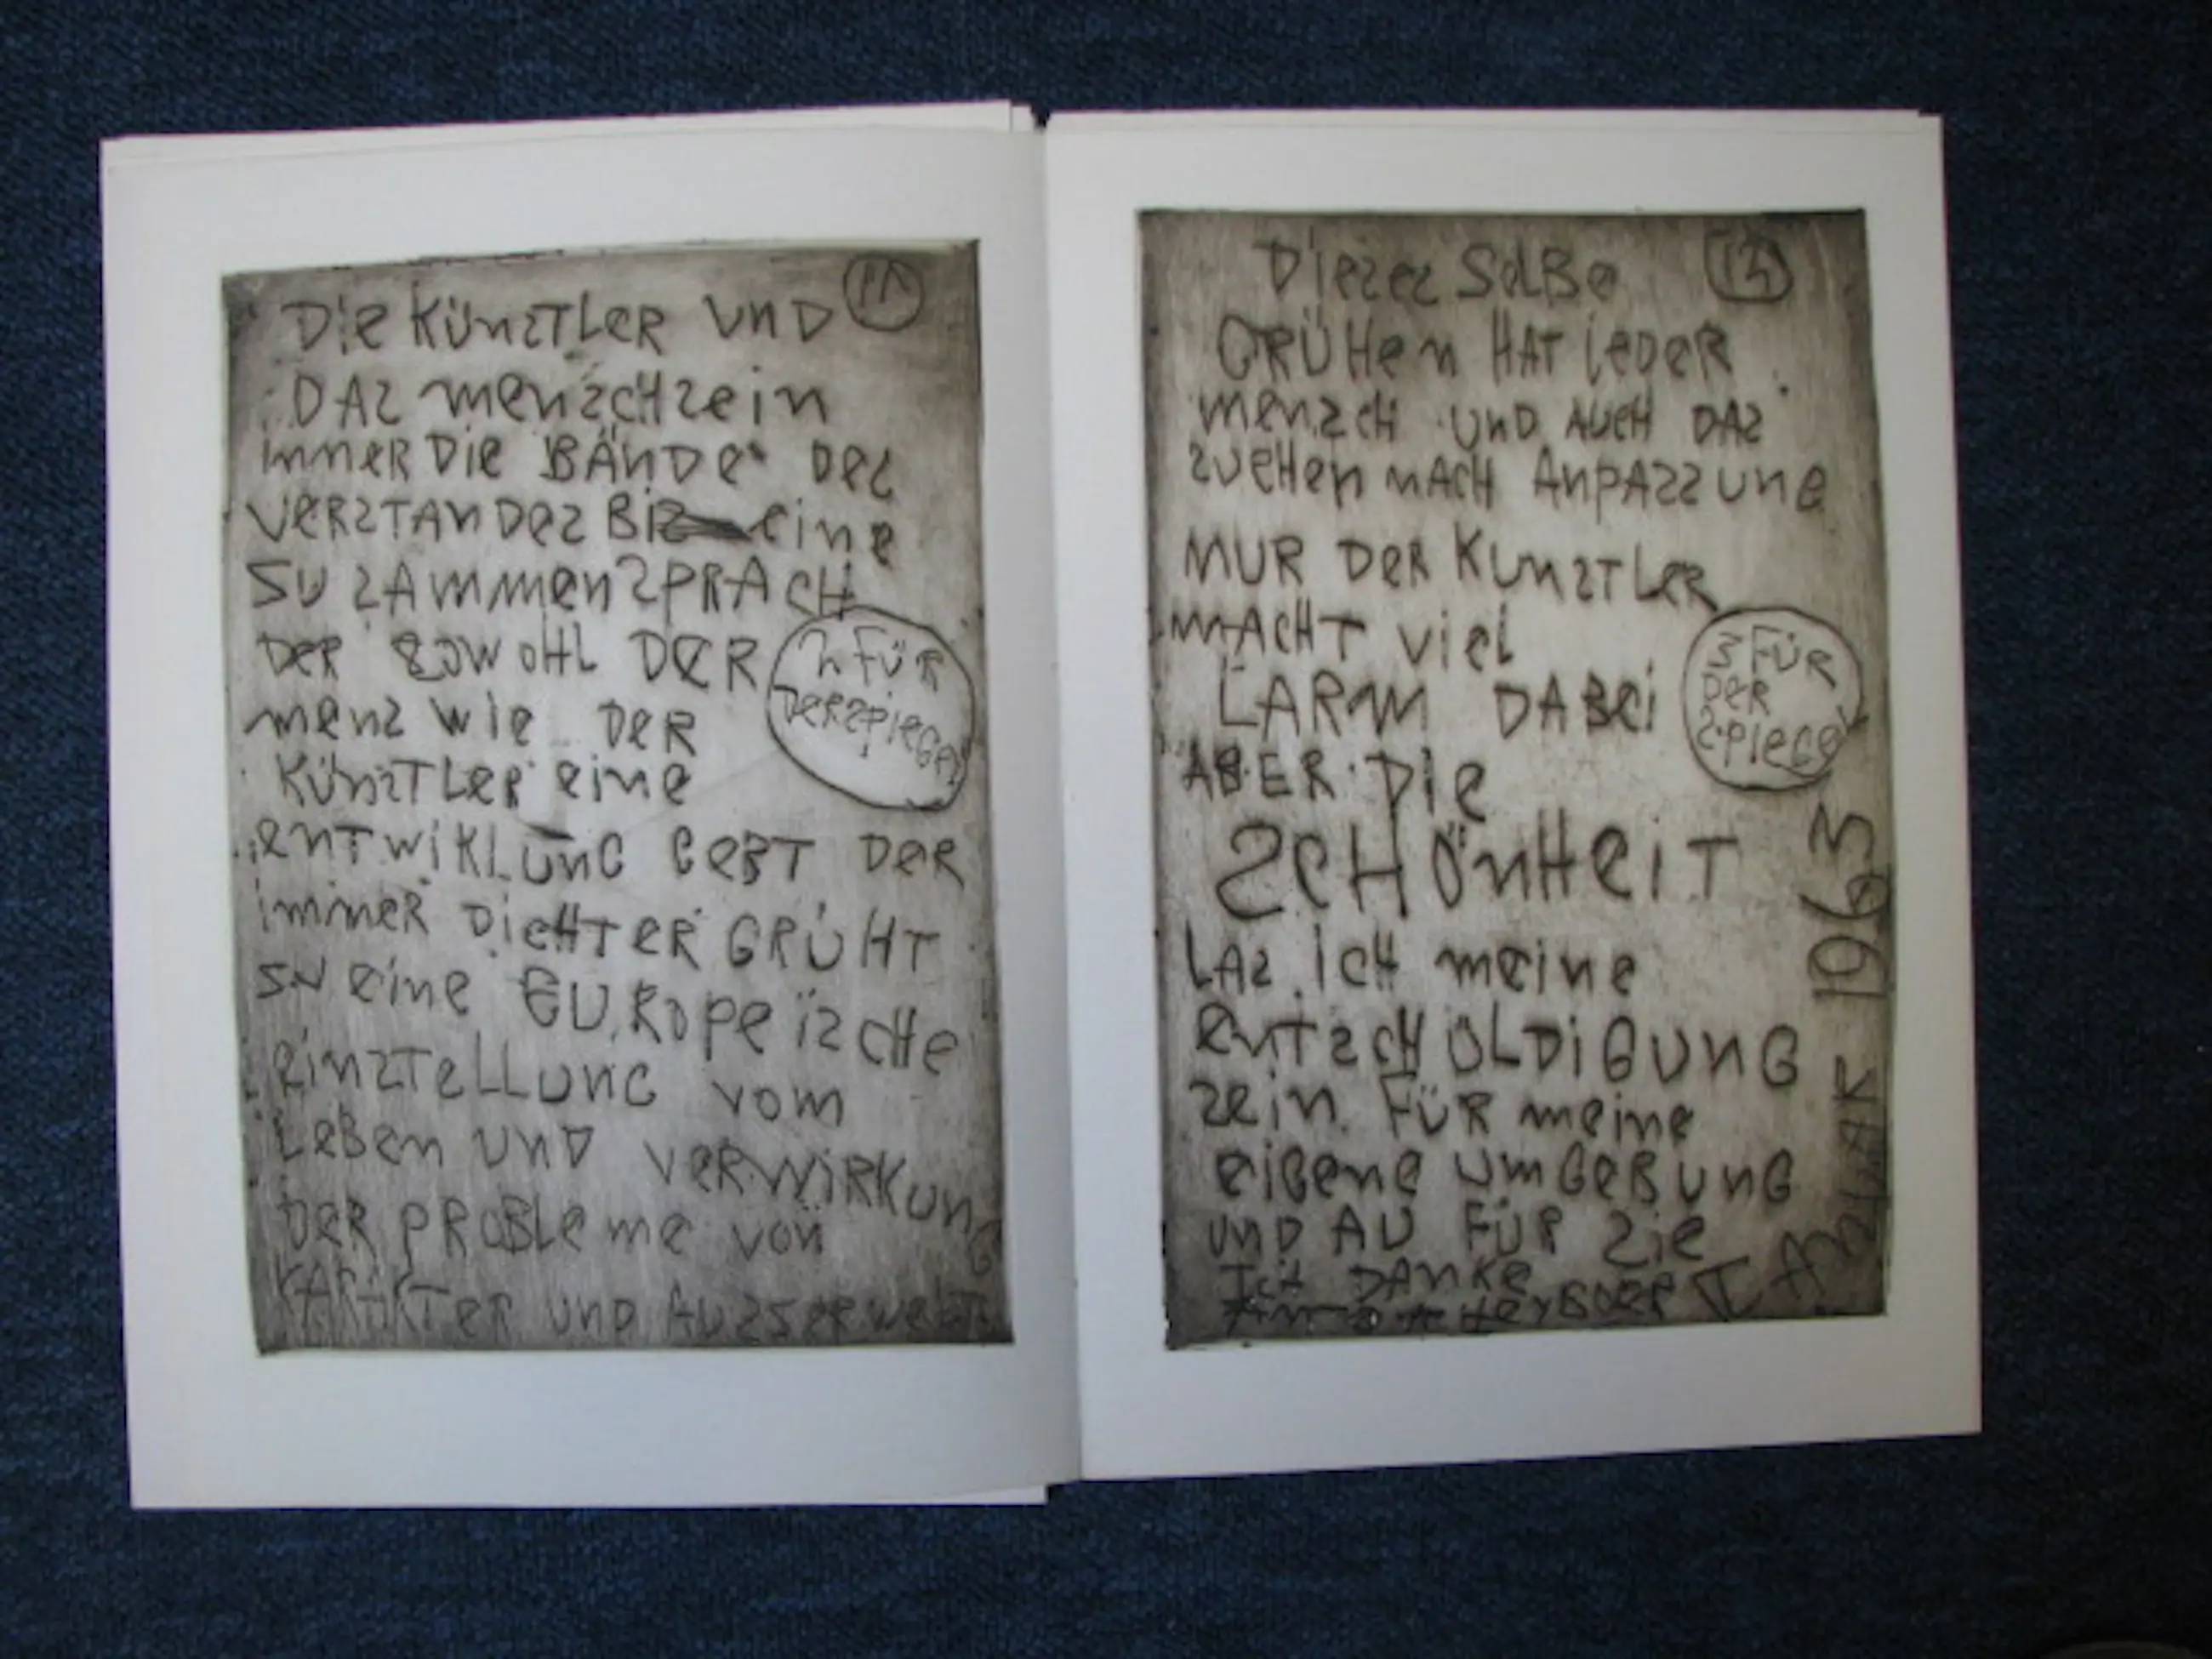 Die KünzTLeR UnD
DAZ menzcHzein
immeR Die BÄnDe DeZ
VeRzTAnDez Biz eine
SU ZAmmenzPRACH
DeR zowoHL DeR
2 FÜR
DeR zpieGel
menz wie DeR
KünzTLeR eine
enTwiKLUnG GeBT DeR
immeR DicHTeR GRÜHT
SU eine EURopeïzcHe
einzTeLLUnG vom
LeBen UnD veRwiRKUnG
DeR PRoBLeme von
KARAKTeR UnD AUZSeRweLT
Diezez SeLBe
GRÜHen HAT ieDeR
menzcH UnD AUcH DAz
zUcHen nAcH AnpAzzUnG
nUR DeR KUnzTLeR
mAcHT vieL
LÄRm DABei
3 FÜR
DeR
zpieGeL
ABER Die
ZCHÖnHeiT
LAz icH meine
enTzcHULDiGUnG
zein FÜR meine
eiGene UmGeBUnG
UnD AU FÜR Zie
IcH DAnKe
Anton Heyboer
1963